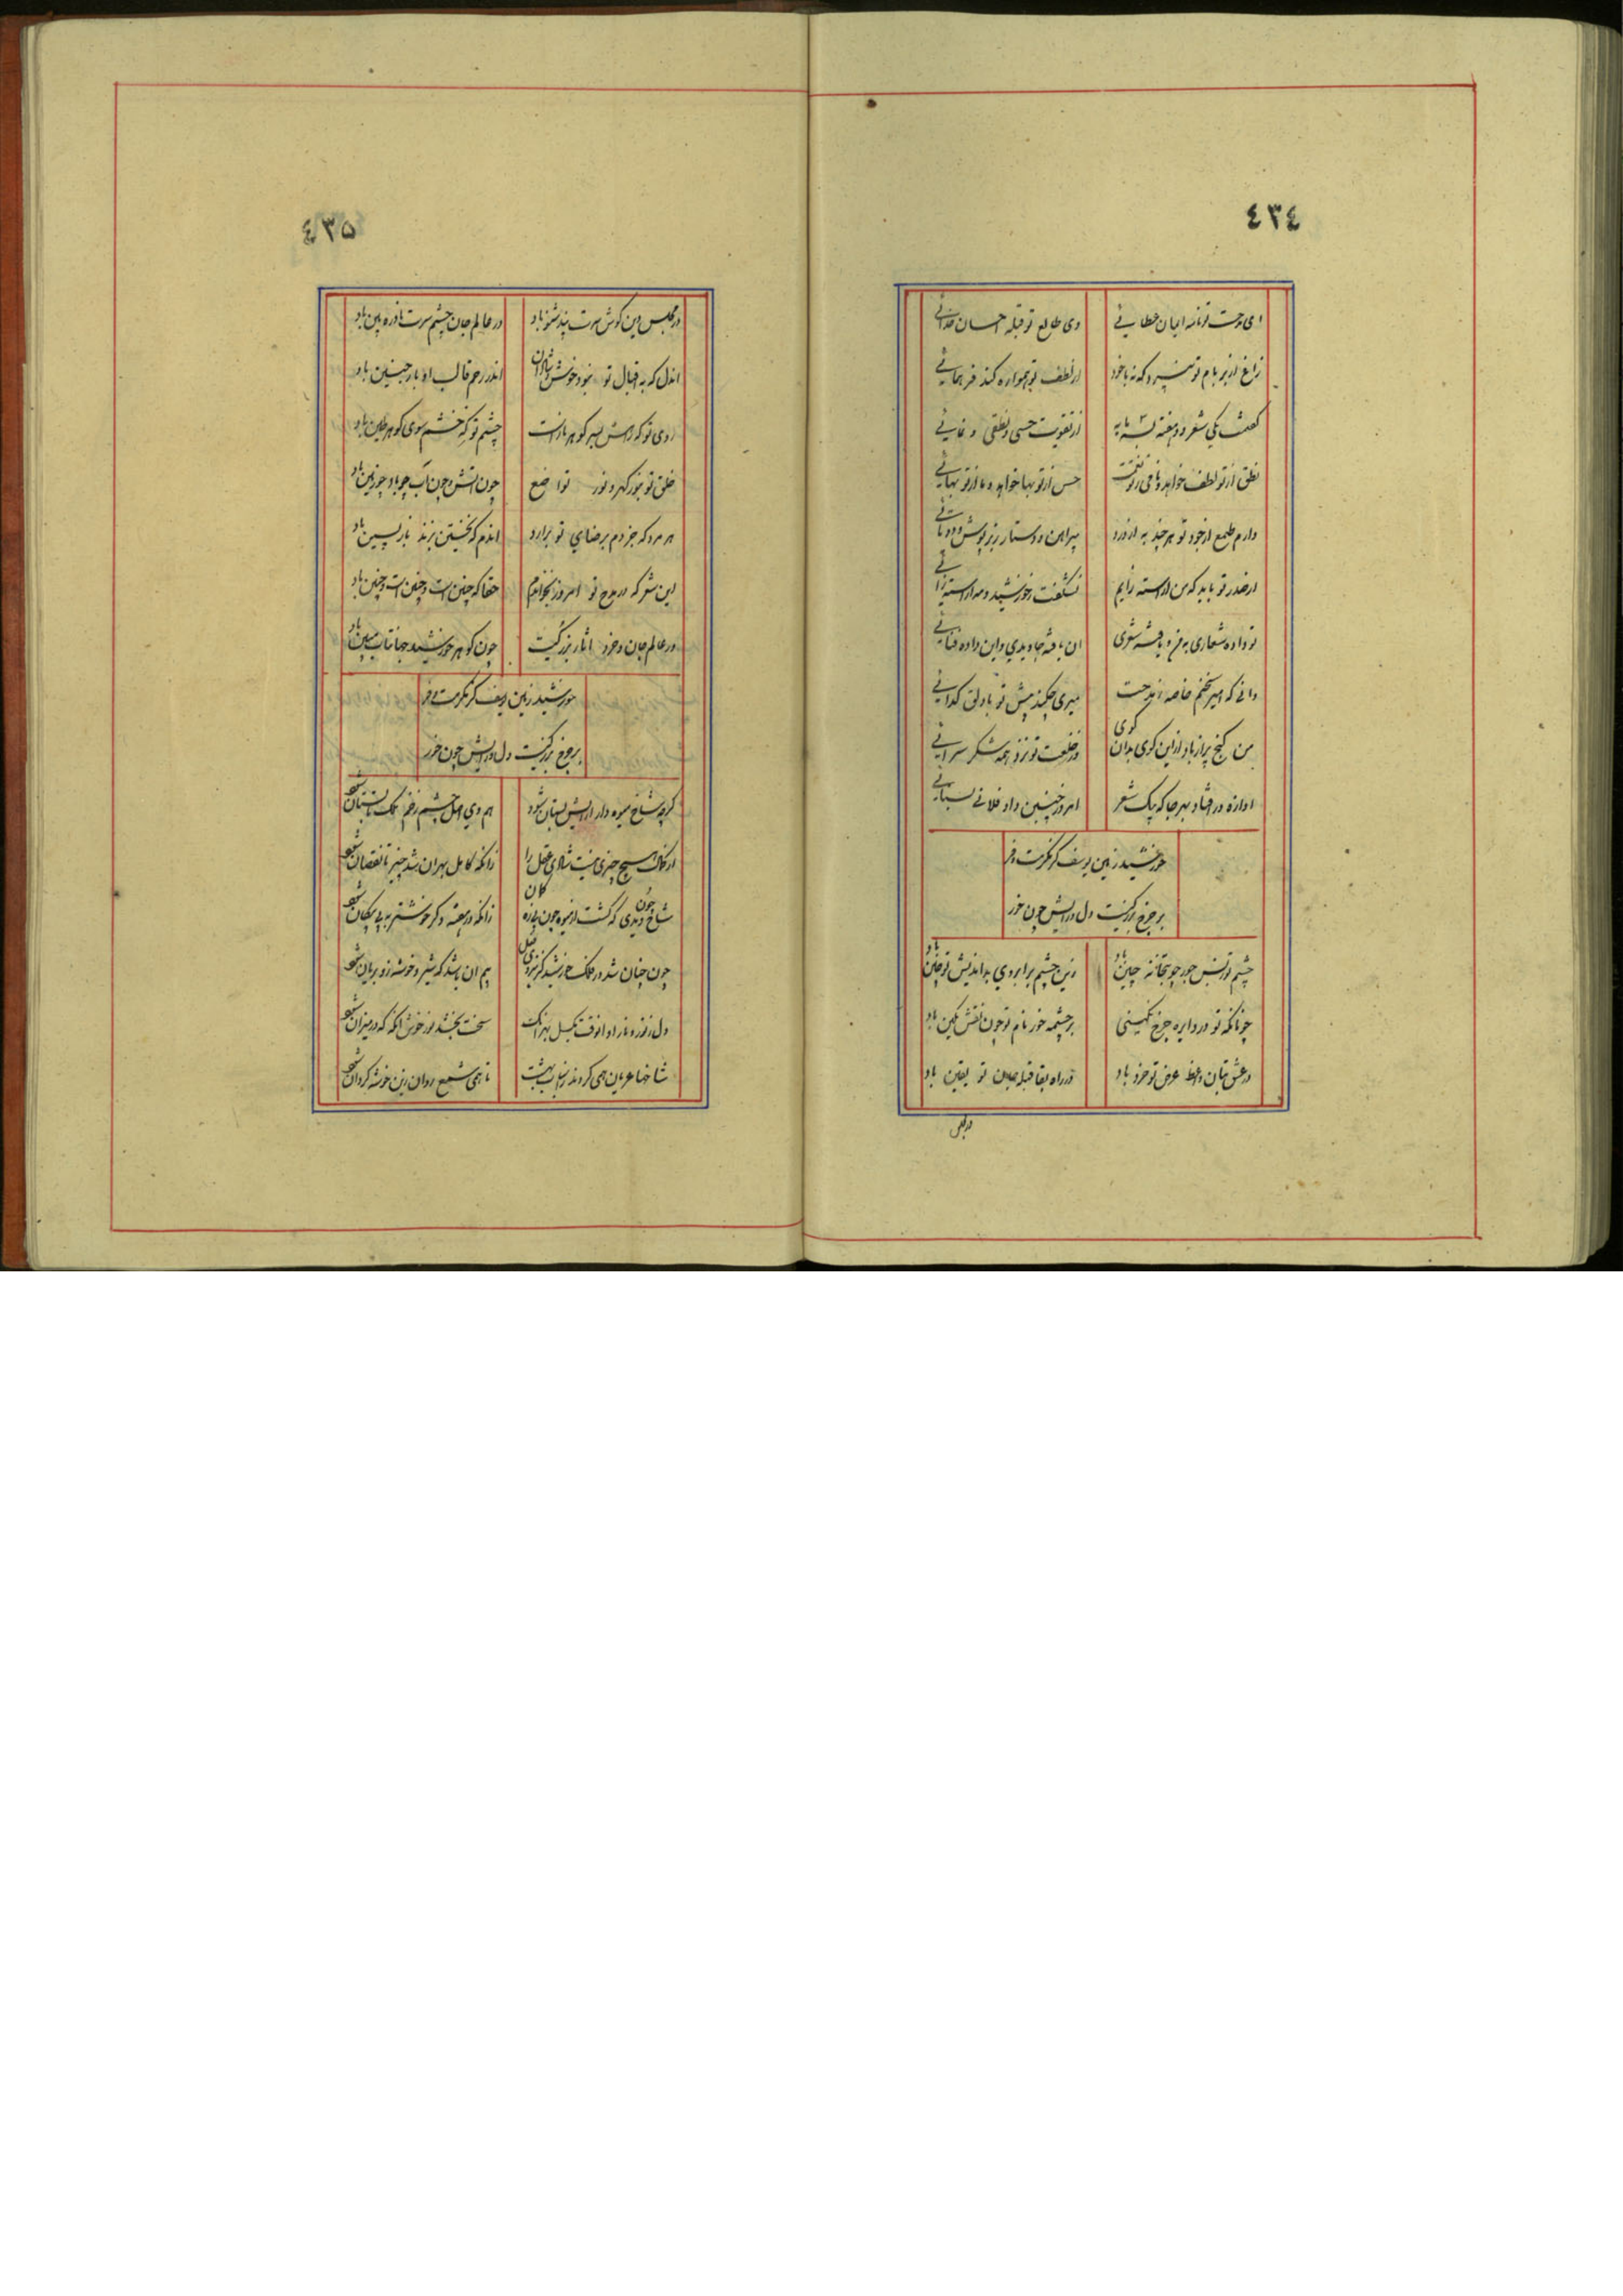 ٤٣٤
ای مدحت تو نامه ایمان خطایی وی طالع تو قبله احسان خدائی
زاغ از بر بام تو نپرد که نه با خود از لطف تو همواره کند فر همایی
گفت یکی شعر و دو هفته از تقویت حسی و نطقی و نمایی
نطق از تو لطف خواهد و نامی ز تو قوت حس از تو بها خواهد و ما از تو بهایی
دارم طمع از جود تو هر چند به از درد پیراهن و دستار زبرپوش و دوتایی
از صدر تو باید که من آراسته آیم نشگفت ز خورشید و مه آراسته رائی
تو داده شعاری به من و یافته شعری ان یافته جاویدی و این داده فنایی
دانی که امیر سخنم خاصه به مدحت میری چکند پیش تو با دلق گدایی
من گنج پر از باد از این گوی بدان گوی در خلعت تو نزد همه شکر سرایی
اوازه در افتاد بهر جا که به یک شعر امروز چنین داد فلانی بسنایی
خورشید زمین یوسف کز مکرمت و فر
بر چرخ بزرگیست دل و رایش چون خور
چشم تو ز نقش خور چو بتخانه چین باد زین چشم بر ابروی بد اندیش تو چین باد
چونانکه تو در دایره چرخ نگینی بر چشمه خور نام تو چون نقش نگین باد
در عشق بتان واعظ عرض تو خرد باد در راه بقا قبله جان تو یقین باد
در مجلس
٤٣٥
در مجلس دین گوش سرت پند شنو باد در عالم جان چشم سرت نادره بین باد
اندل که به اقبال تو نبود خوش و شادان اندر رحم قالب او باز جنین باد
روی تو که زاتش بسر گوهر بازست چشم تو گه خشم سوی گوهر طین باد
خلق تو بنور گهر و نور تواضع چون آتش و چون آب و چو باد و چو زمین باد
هر مرد که جز دم برضای تو برارد اندم که نخستین بزند باز پسین باد
این شعر که در مدح تو امروز بخواندم حقا که چنین است و چنین است و چنین باد
در عالم جان و خرد اثار بزرگیت چون گوهر خورشید جهانتاب مبین باد
خورشید زمین یوسف کز مکرمت و فر
بر چرخ بزرگیست دل و رایش چون خور
گرچه شاخ میوه دار آرایش بستان شود هم وی از چشم زخم
از کمال هیچ چیزی نیست شادی عقل را زانکه کامل بهر آن شد چیز تا نقصان شود
شاخ چون دیدی که گشت از میوه چون زانکه در هفته دگر
چون چنان شد در فلک خورشید کز نزدی بیم آن باشد که شیر و خوشه زو بریان شود
دل ز نور و نار او انوقت بگسل بهر انک سخت بخشد نور خوش انگه که در میزان شود
شاخها عریان همی گردند تا همی شمع روان زین خوشه گردان شود